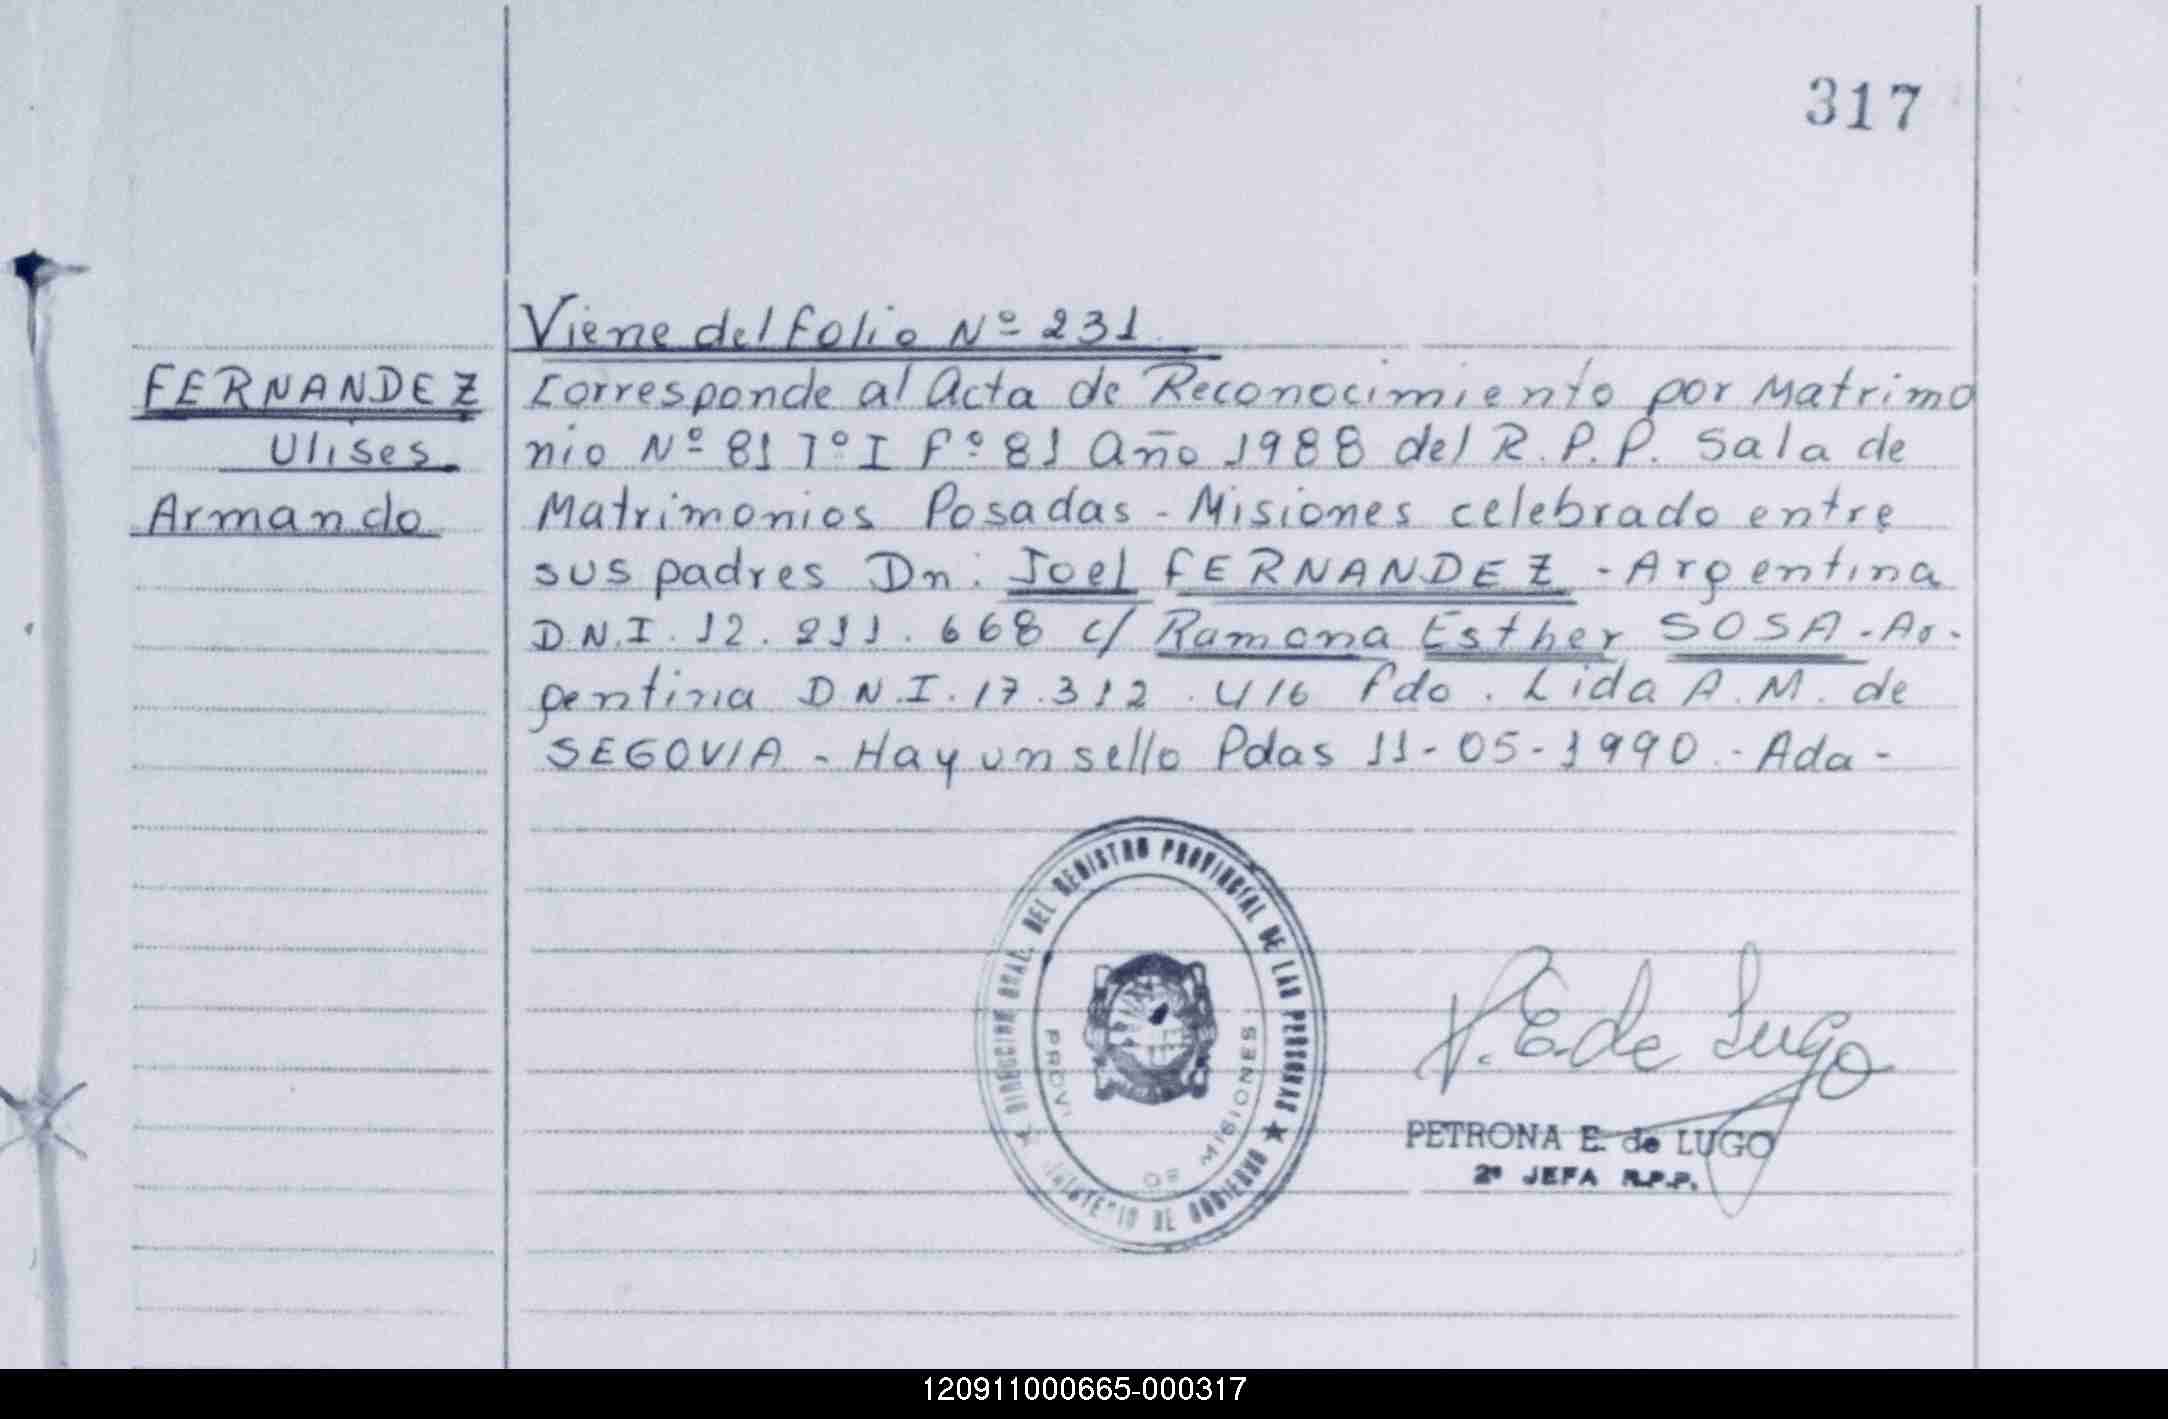 317
Viene del folio Nº 231
FERNANDEZ
Ulises
Armando
Corresponde al Acta de Reconocimiento por Matrimo
nio Nº 81 Tº I Fº 81 Año 1988 del R.P.P. Sala de
Matrimonios Posadas - Misiones celebrado entre
sus padres Dn: Joel FERNANDEZ - Argentina
D.N.I. 12.211.668 c/ Ramona Esther SOSA - Ar-
gentina D.N.I. 17.312.416 fdo. Lida A.M. de
SEGOVIA - Hay un sello Pdas 11-05-1990 - Ada -
★ DIRECCION GRAL. DEL REGISTRO PROVINCIAL DE LAS PERSONAS ★
MINISTERIO DE GOBIERNO
DE MISIONES
P. E. de Lugo
PETRONA E. de LUGO
2º JEFA R.P.P.
120911000665-000317